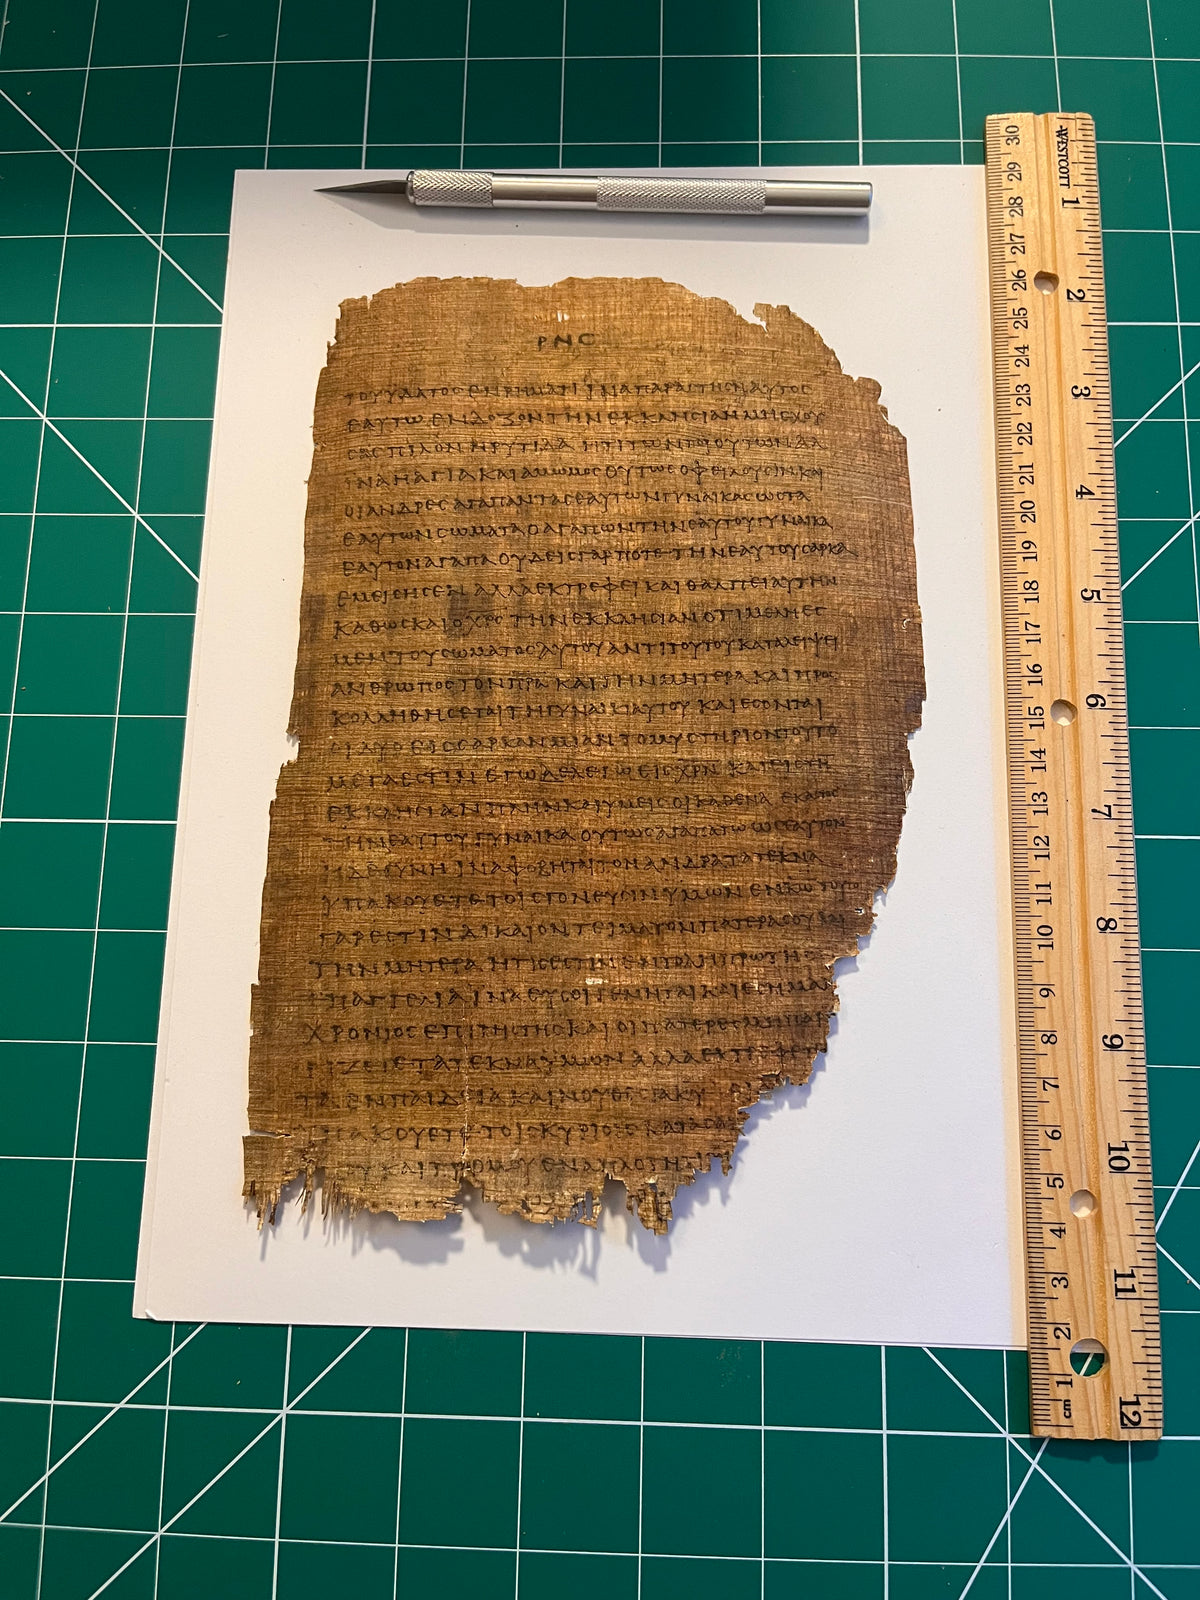 ΡΝϹ
ΤΟΥ ΥΔΑΤΟϹ ΕΝ ΡΗΜΑΤΙ ΙΝΑ ΠΑΡΑϹΤΗϹΗ ΑΥΤΟϹ
ΕΑΥΤΩ ΕΝΔΟΞΟΝ ΤΗΝ ΕΚΚΛΗϹΙΑΝ ΜΗ ΕΧΟΥ
ϹΑϹ ΠΙΛΟΝ Η ΡΥΤΙΔΑ Η ΤΙ ΤΩΝ ΤΟΙΟΥΤΩΝ ΑΛ
ΙΝΑ Η ΑΓΙΑ ΚΑΙ ΑΜΩΜΟϹ ΟΥΤΩϹ ΟΦΕΙΛΟΥϹΙΝ ΚΑΙ
ΟΙ ΑΝΔΡΕϹ ΑΓΑΠΑΝ ΤΑϹ ΕΑΥΤΩΝ ΓΥΝΑΙΚΑϹ ΩϹ ΤΑ
ΕΑΥΤΩΝ ϹΩΜΑΤΑ Ο ΑΓΑΠΩΝ ΤΗΝ ΕΑΥΤΟΥ ΓΥΝΑΙΚΑ
ΕΑΥΤΟΝ ΑΓΑΠΑ ΟΥΔΕΙϹ ΓΑΡ ΠΟΤΕ ΤΗΝ ΕΑΥΤΟΥ ϹΑΡΚΑ
ΕΜΕΙϹΗϹΕΝ ΑΛΛΑ ΕΚΤΡΕΦΕΙ ΚΑΙ ΘΑΛΠΕΙ ΑΥΤΗΝ
ΚΑΘΩϹ ΚΑΙ Ο ΧΡϹ ΤΗΝ ΕΚΚΛΗϹΙΑΝ ΟΤΙ ΜΕΛΗ ΕϹ
ΜΕΝ ΤΟΥ ϹΩΜΑΤΟϹ ΑΥΤΟΥ ΑΝΤΙ ΤΟΥΤΟΥ ΚΑΤΑΛΕΙΨΕΙ
ΑΝΘΡΩΠΟϹ ΤΟΝ ΠΡΑ ΚΑΙ ΤΗΝ ΜΗΤΕΡΑ ΚΑΙ ΠΡΟϹ
ΚΟΛΛΗΘΗϹΕΤΑΙ ΤΗ ΓΥΝΑΙΚΙ ΑΥΤΟΥ ΚΑΙ ΕϹΟΝΤΑΙ
ΟΙ ΔΥΟ ΕΙϹ ϹΑΡΚΑ ΜΙΑΝ ΤΟ ΜΥϹΤΗΡΙΟΝ ΤΟΥΤΟ
ΜΕΓΑ ΕϹΤΙΝ ΕΓΩ ΔΕ ΛΕΓΩ ΕΙϹ ΧΡΝ ΚΑΙ ΕΙϹ ΤΗ
ΕΚΚΛΗϹΙΑΝ ΠΛΗΝ ΚΑΙ ΥΜΕΙϹ ΟΙ ΚΑΘ ΕΝΑ ΕΚΑϹΤΟϹ
ΤΗΝ ΕΑΥΤΟΥ ΓΥΝΑΙΚΑ ΟΥΤΩϹ ΑΓΑΠΑΤΩ ΩϹ ΕΑΥΤΟΝ
Η ΔΕ ΓΥΝΗ ΙΝΑ ΦΟΒΗΤΑΙ ΤΟΝ ΑΝΔΡΑ ΤΑ ΤΕΚΝΑ
ΥΠΑΚΟΥΕΤΕ ΤΟΙϹ ΓΟΝΕΥϹΙΝ ΥΜΩΝ ΕΝ ΚΩ ΤΟΥΤΟ
ΓΑΡ ΕϹΤΙΝ ΔΙΚΑΙΟΝ ΤΕΙΜΑ ΤΟΝ ΠΑΤΕΡΑ ϹΟΥ ΚΑΙ
ΤΗΝ ΜΗΤΕΡΑ ΗΤΙϹ ΕϹΤΙΝ ΕΝΤΟΛΗ ΠΡΩΤΗ
ΕΠΑΓΓΕΛΙΑ ΙΝΑ ΕΥ ϹΟΙ ΓΕΝΗΤΑΙ ΚΑΙ ΕϹΗ ΜΑΚ
ΧΡΟΝΙΟϹ ΕΠΙ ΤΗϹ ΓΗϹ ΚΑΙ ΟΙ ΠΑΤΕΡΕϹ ΜΗ ΠΑΡ
ΓΙΖΕΤΕ ΤΑ ΤΕΚΝΑ ΥΜΩΝ ΑΛΛΑ ΕΚΤΡΕΦΕΤΕ
ΤΑ ΕΝ ΠΑΙΔΕΙΑ ΚΑΙ ΝΟΥΘΕϹΙΑ ΚΥ
ΥΠΑΚΟΥΕΤΕ ΤΟΙϹ ΚΥΡΙΟΙϹ ΚΑΤΑ ϹΑ
ΟΥ ΚΑΙ ΤΡΟΜΟΥ ΕΝ ΑΠΛΟΤΗΤΙ
WESTCOTT
30 29 28 27 26 25 24 23 22 21 20 19 18 17 16 15 14 13 12 11 10 9 8 7 6 5 4 3 2 1 cm
1 2 3 4 5 6 7 8 9 10 11 12